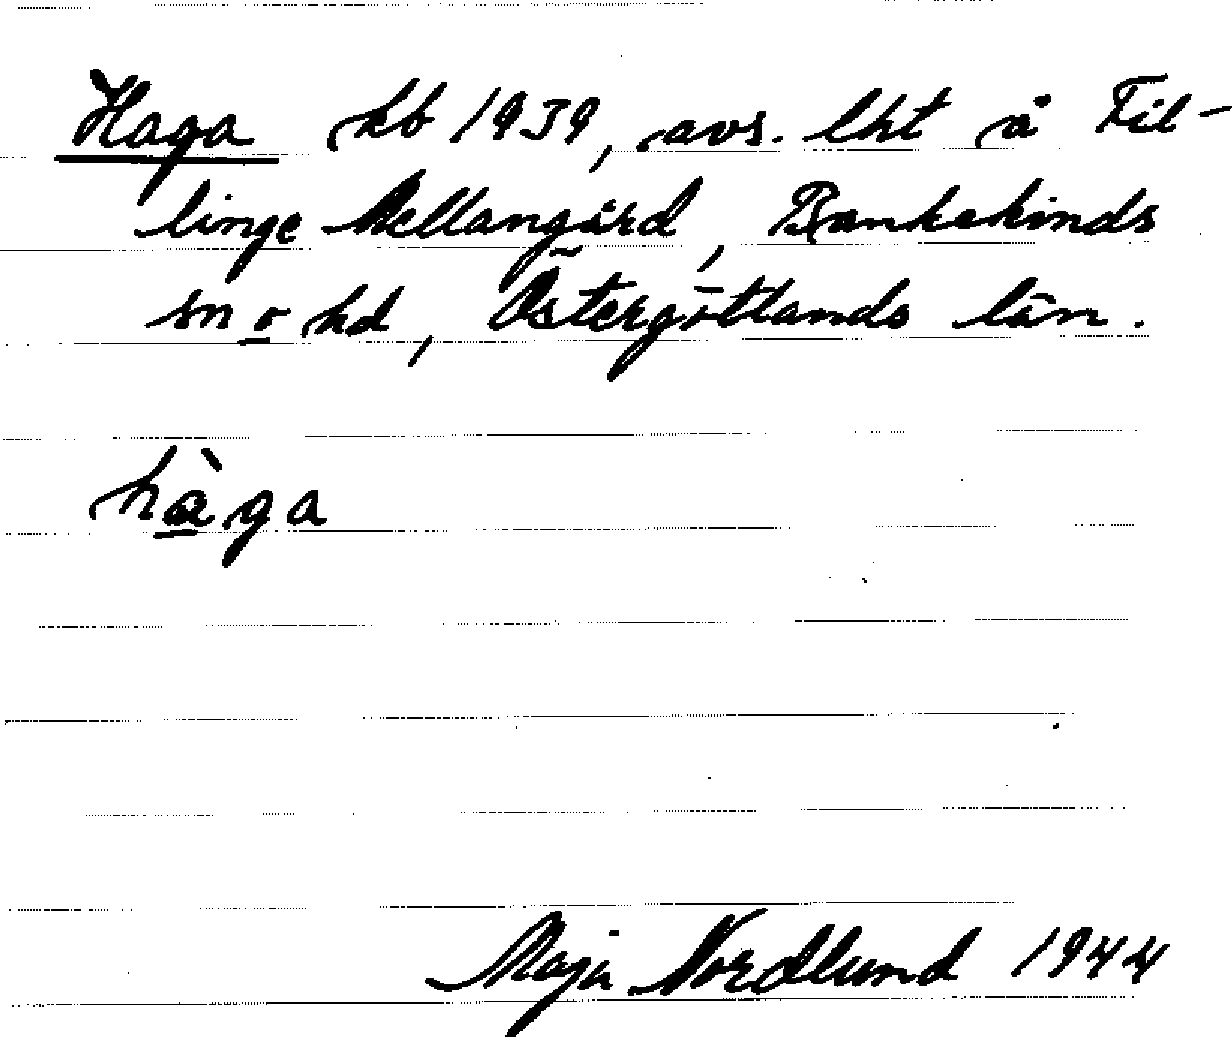 Haga kb 1939, avs. lht å Fil-
linge Mellangård, Bankekinds
sn o hd, Östergötlands län.
hàga
Maja Nordlund 1944